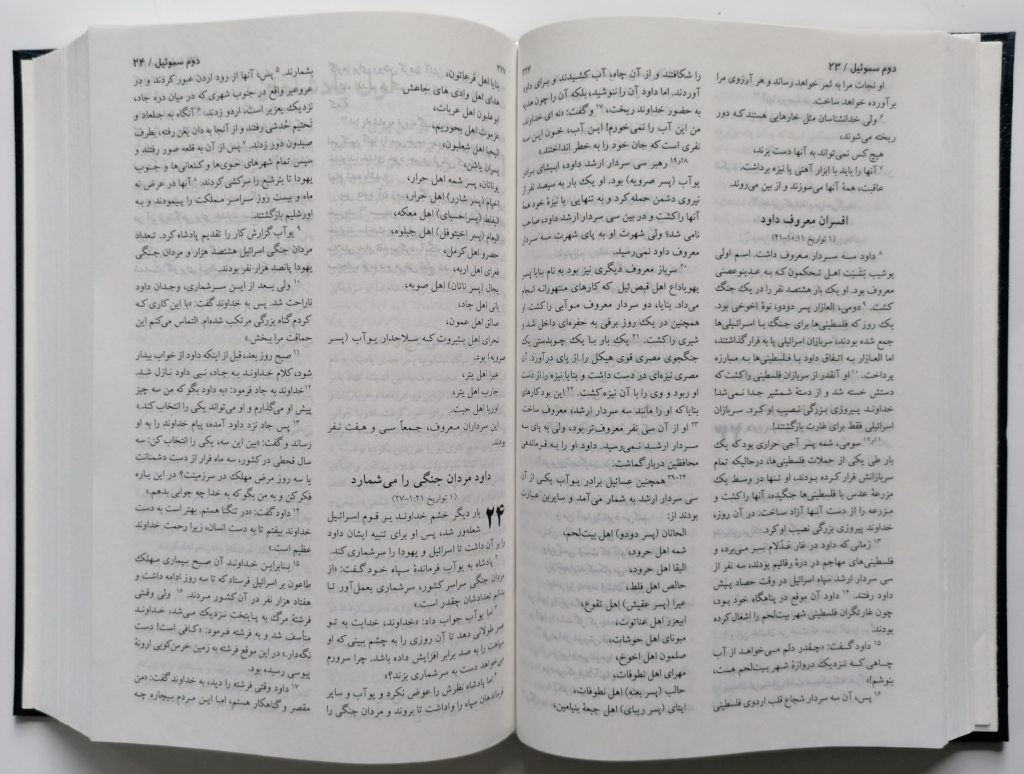 دوم سموئیل / ۲۳
او نجات مرا به ثمر خواهد رساند و هر آرزوی مرا
برآورده خواهد ساخت.
۶ ولی خدانشناسان مثل خارهایی هستند که دور
ریخته می‌شوند،
هیچ کس نمی‌تواند به آنها دست بزند،
۷ آنها را باید با ابزار آهنی یا نیزه برداشت.
عاقبت، همهٔ آنها می‌سوزند و از بین می‌روند.
افسران معروف داود
(۱ تواریخ ۱۱:‏۱۰-۴۱)
۸ داود سه سردار معروف داشت. اسم اولی
یوشیب بَشَبَت اهل تحکمون که به عدینوعصنی
معروف بود. او یک بار هشتصد نفر را در یک جنگ
کشت. ۹ دومی، العازار پسر دودو، نوهٔ اخوخی بود.
یک روز که فلسطینی‌ها برای جنگ با اسرائیلی‌ها
جمع شده بودند، سربازان اسرائیلی پا به فرار گذاشتند،
اما العازار به اتفاق داود با فلسطینی‌ها به مبارزه
پرداخت. ۱۰ او آنقدر از سربازان فلسطینی را کشت که
دستش خسته شد و از دستهٔ شمشیر جدا نمی‌شد!
خداوند پیروزی بزرگی نصیب او کرد. سربازان
اسرائیلی فقط برای غارت بازگشتند!
۱۱و۱۲ سومی، شمه پسر آجی حراری بود که یک
بار طی یکی از حملات فلسطینی‌ها، درحالیکه تمام
سربازانش فرار کرده بودند، او تنها در وسط یک
مزرعهٔ عدس با فلسطینی‌ها جنگیده، آنها را کشت و
مزرعه را از دست آنها آزاد ساخت. در آن روز،
خداوند پیروزی بزرگی نصیب او کرد.
۱۳ زمانی که داود در غار عَدُلام بسر می‌برد، و
فلسطینی‌های مهاجم در درهٔ رفائیم بودند، سه نفر از
سی سردار ارشد سپاه اسرائیل در وقت حصاد پیش
داود رفتند. ۱۴ داود آن موقع در پناهگاه خود بود،
چون غارتگران فلسطینی شهر بیت‌لحم را اشغال کرده
بودند.
۱۵ داود گفت: «چقدر دلم می‌خواهد از آب
چاهی که نزدیک دروازهٔ شهر بیت‌لحم هست،
بنوشم!»
۱۶ پس، آن سه سردار شجاع قلب اردوی فلسطینی
۳۲۶
را شکافتند و از آن چاه، آب کشیدند و برای داود
آوردند. اما داود آن را ننوشید، بلکه آن را چون هدیه
به حضور خداوند ریخت، ۱۷ و گفت: «نه ای خداوند،
من این آب را نمی‌خورم! این آب، خون این سه
نفری است که جان خود را به خطر انداختند.»
۱۸و۱۹ رهبر سی سردار ارشد داود، ابیشای برادر
یوآب (پسر صرویه) بود. او یک بار به سیصد نفر از
نیروی دشمن حمله کرد و به تنهایی با نیزهٔ خود همهٔ
آنها را کشت و در بین سی سردار ارشد داود، صاحب
نامی شد؛ ولی شهرت او به پای شهرت سه سردار
معروف داود نمی‌رسید.
۲۰ سرباز معروف دیگری نیز بود به نام بنایا پسر
یهویاداع اهل قبصئیل که کارهای متهورانه انجام
می‌داد. بنایا، دو سردار معروف موآبی را کشت. او
همچنین در یک روز برفی به حفره‌ای داخل شد و
شیری را کشت. ۲۱ یک بار با یک چوبدستی یک
جنگجوی مصری قوی هیکل را از پای درآورد. آن
مصری نیزه‌ای در دست داشت و بنایا نیزه را از دست
او ربود و وی را با آن نیزه کشت. ۲۲ این بود کارهای
بنایا که او را مانند سه سردار ارشد، معروف ساخت.
۲۳ او از آن سی نفر معروف‌تر بود، ولی به پای سه
سردار ارشد نمی‌رسید. داود او را به فرماندهی
محافظین دربار گماشت.
۲۴-۳۹ همچنین عسائیل برادر یوآب یکی از آن
سی سردار ارشد به شمار می‌آمد و سایرین عبارت
بودند از:
الحانان (پسر دودو) اهل بیت‌لحم،
شمه اهل حرود،
الیقا اهل حرود،
حالص اهل فلط،
عیرا (پسر عقیش) اهل تقوع،
ابیعزر اهل عناتوت،
مبونای اهل حوشات،
صلمون اهل اخوخ،
مهرای اهل نطوفات،
حالب (پسر بعنه) اهل نطوفات،
ایتای (پسر ریبای) اهل جبعهٔ بنیامین،
۳۲۷
بنایا اهل فرعاتون،
هدای اهل وادی های جاعش،
ابوعلبون اهل عربات،
عزموت اهل بحوریم،
الیحبا اهل شعلبون،
پسران یاشن،
یوناتان، پسر شمه اهل حرار،
اخیام (پسر شارر) اهل حرار،
الیفلط (پسر احسبای) اهل معکه،
الیعام (پسر اخیتوفل) اهل جیلوه،
حصرو اهل کرمل،
فعرای اهل اربه،
یجال (پسر ناتان) اهل صوبه،
بانی اهل جاد،
صالق اهل عمون،
نحرای اهل بئیروت که سلاحدار یوآب (پسر
صرویه) بود.
عیرا اهل یتر،
جارب اهل یتر،
اوریا اهل حیت.
این سرداران معروف، جمعاً سی و هفت نفر
بودند.
داود مردان جنگی را می‌شمارد
(۱ تواریخ ۲۱:‏۱-۲۷)
۲۴ بار دیگر خشم خداوند بر قوم اسرائیل
شعله‌ور شد، پس او برای تنبیه ایشان داود
را بر آن داشت تا اسرائیل و یهودا را سرشماری کند.
۲ پادشاه به یوآب فرماندهٔ سپاه خود گفت: «از
مردان جنگی سراسر کشور، سرشماری بعمل آور تا
بدانم تعدادشان چقدر است.»
۳ اما یوآب جواب داد: «خداوند، خدایت به تو
عمر طولانی دهد تا آن روزی را به چشم ببینی که او
سپاهت را به صد برابر افزایش داده باشد. چرا سرورم
می‌خواهد دست به سرشماری بزند؟»
۴ اما پادشاه نظرش را عوض نکرد و یوآب و سایر
فرماندهان سپاه را واداشت تا بروند و مردان جنگی را
دوم سموئیل / ۲۴
بشمارند. ۵ پس، آنها از رود اردن عبور کردند و در
عروعیر واقع در جنوب شهری که در میان دره جاد،
نزدیک یعزیر است، اردو زدند. ۶ آنگاه به جلعاد و
تَحتیم حُدشی رفتند و از آنجا به دان یَعَن رفته، بطرف
صیدون دور زدند. ۷ پس از آن به قلعه صور رفتند و
سپس تمام شهرهای حوی‌ها و کنعانی‌ها و جنوب
یهودا تا بئرشبع را سرکشی کردند. ۸ آنها در عرض نه
ماه و بیست روز سراسر مملکت را پیمودند و به
اورشلیم بازگشتند.
۹ یوآب گزارش کار را تقدیم پادشاه کرد. تعداد
مردان جنگی اسرائیل هشتصد هزار و مردان جنگی
یهودا پانصد هزار نفر بودند.
۱۰ ولی بعد از این سرشماری، وجدان داود
ناراحت شد. پس به خداوند گفت: «با این کاری که
کردم گناه بزرگی مرتکب شده‌ام. التماس می‌کنم این
حماقت مرا ببخش.»
۱۱ صبح روز بعد، قبل از اینکه داود از خواب بیدار
شود، کلام خداوند به جاد، نبی داود نازل شد.
۱۲ خداوند به جاد فرمود: «به داود بگو که من سه چیز
پیش او می‌گذارم و او می‌تواند یکی را انتخاب کند.»
۱۳ پس جاد نزد داود آمده، پیام خداوند را به او
رساند و گفت: «بین این سه، یکی را انتخاب کن: سه
سال قحطی در کشور، سه ماه فرار از دست دشمنانت
یا سه روز مرض مهلک در سرزمینت؟ در این باره
فکر کن و به من بگو که به خدا چه جوابی بدهم.»
۱۴ داود گفت: «در تنگنا هستم. بهتر است به دست
خداوند بیفتم تا به دست انسان، زیرا رحمت خداوند
عظیم است.»
۱۵ بنابراین خداوند آن صبح بیماری مهلک
طاعون بر اسرائیل فرستاد که تا سه روز ادامه داشت و
هفتاد هزار نفر در آن کشور مردند. ۱۶ ولی وقتی
فرشتهٔ مرگ به پایتخت نزدیک می‌شد، خداوند
متأسف شد و به فرشته فرمود: «کافی است! دست
نگه‌دار.» در این موقع فرشته به زمین خرمن‌کوبی ارونهٔ
یبوسی رسیده بود.
۱۷ داود وقتی فرشته را دید، به خداوند گفت: «من
مقصر و گناهکار هستم، اما این مردم بیچاره چه